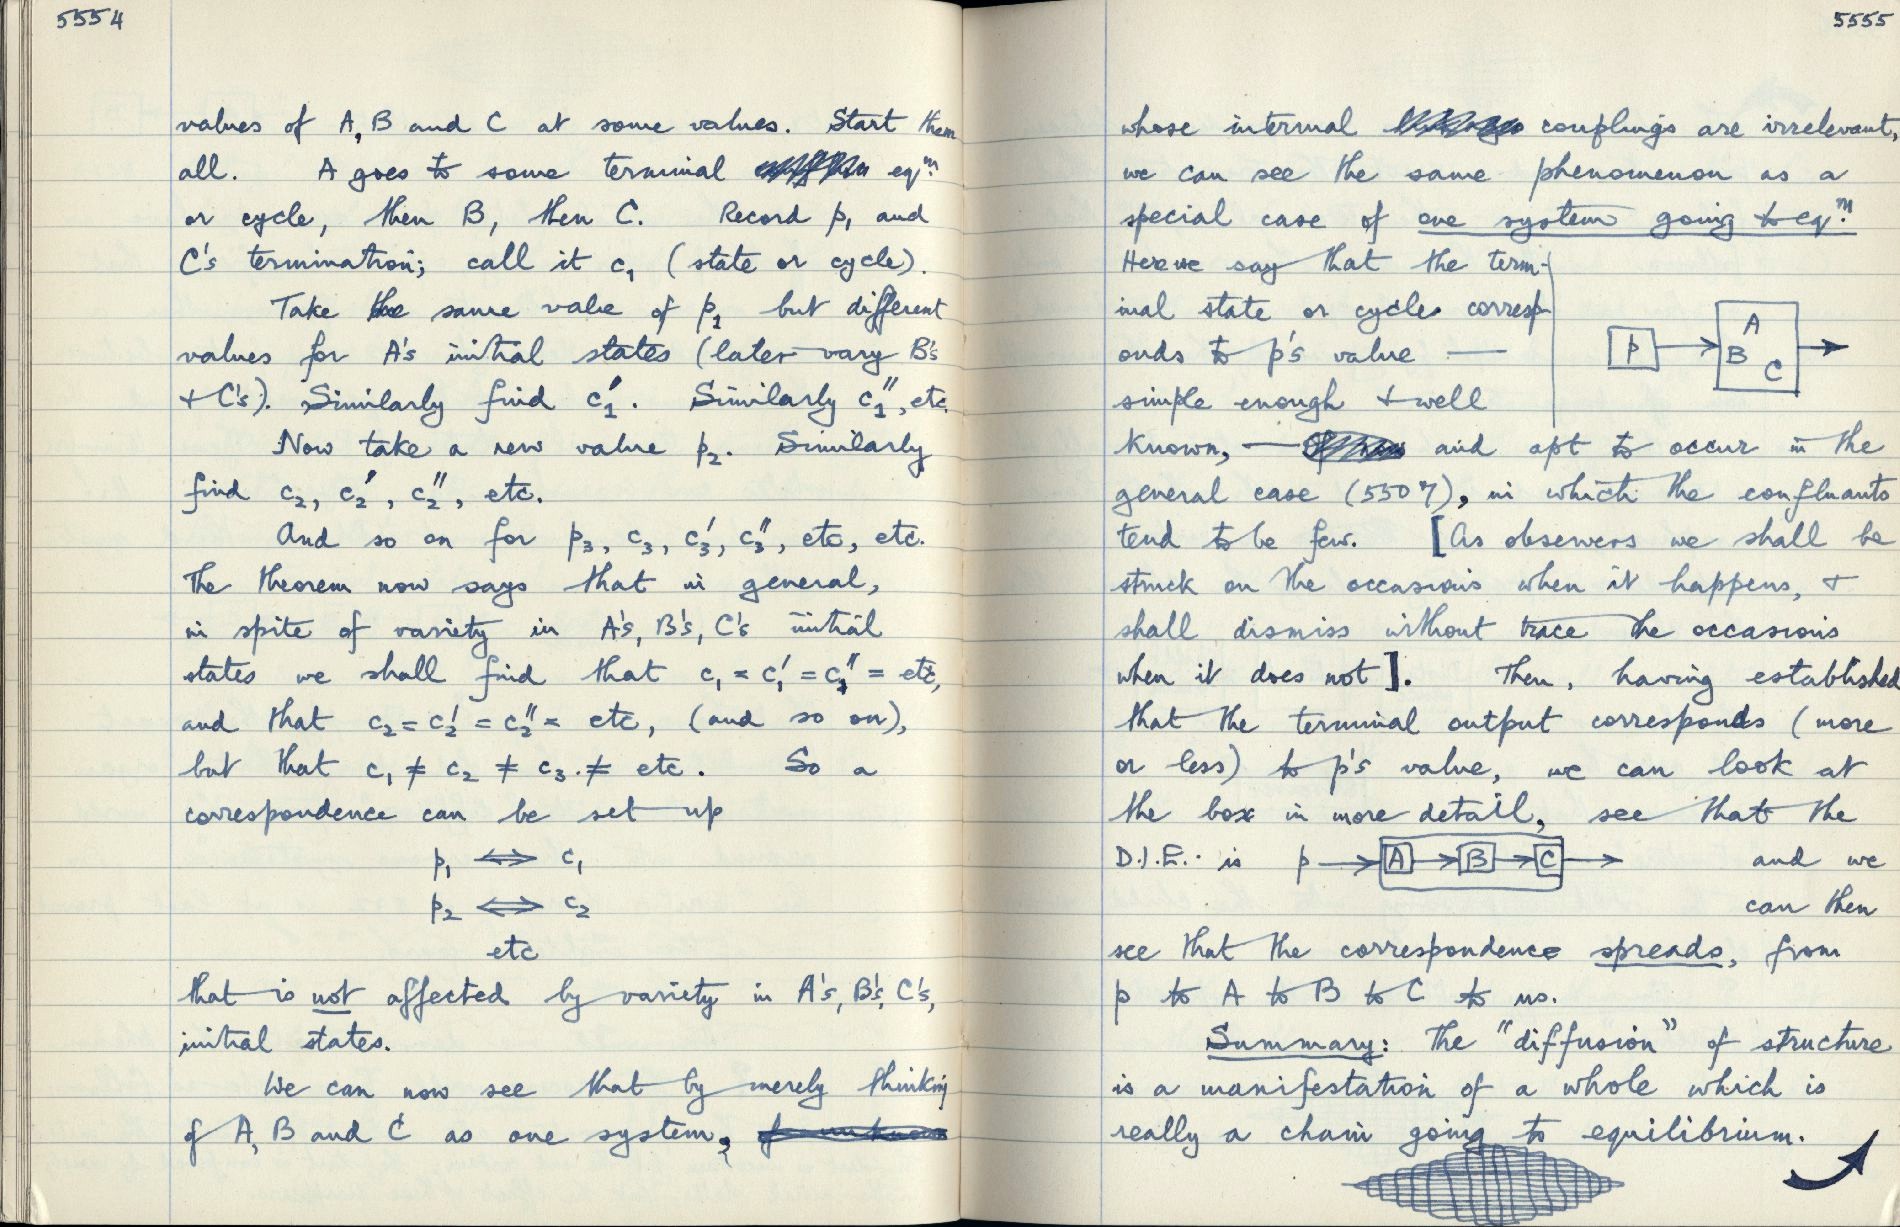 5554
values of A, B and C at some values. Start them
all. A goes to some terminal eqm.
or cycle, then B, then C. Record p₁ and
C's termination; call it c₁ (state or cycle).
Take the same value of p₁ but different
values for A's initial states (later vary B's
+ C's). Similarly find c₁′. Similarly c₁″, etc.
Now take a new value p₂. Similarly
find c₂, c₂′, c₂″, etc.
And so on for p₃, c₃, c₃′, c₃″, etc, etc.
The theorem now says that in general,
in spite of variety in A's, B's, C's initial
states we shall find that c₁ = c₁′ = c₁″ = etc,
and that c₂ = c₂′ = c₂″ = etc, (and so on),
but that c₁ ≠ c₂ ≠ c₃ ≠ etc. So a
correspondence can be set up
p₁ ⟺ c₁
p₂ ⟺ c₂
etc
that is not affected by variety in A's, B's, C's,
initial states.
We can now see that by merely thinking
of A, B and C as one system,
5555
whose internal couplings are irrelevant,
we can see the same phenomenon as a
special case of one system going to eqm.
Here we say that the term-
inal state or cycle corresp-
onds to p's value —
simple enough + well
known, — and apt to occur in the
general case (5507), in which the confluents
tend to be few. [As observers we shall be
struck on the occasions when it happens, +
shall dismiss without trace the occasions
when it does not]. Then, having established
that the terminal output corresponds (more
or less) to p's value, we can look at
the box in more detail, see that the
D.I.E. is p → A → B → C → and we
can then
see that the correspondence spreads, from
p to A to B to C to us.
Summary: The "diffusion" of structure
is a manifestation of a whole which is
really a chain going to equilibrium.
p → A B C →